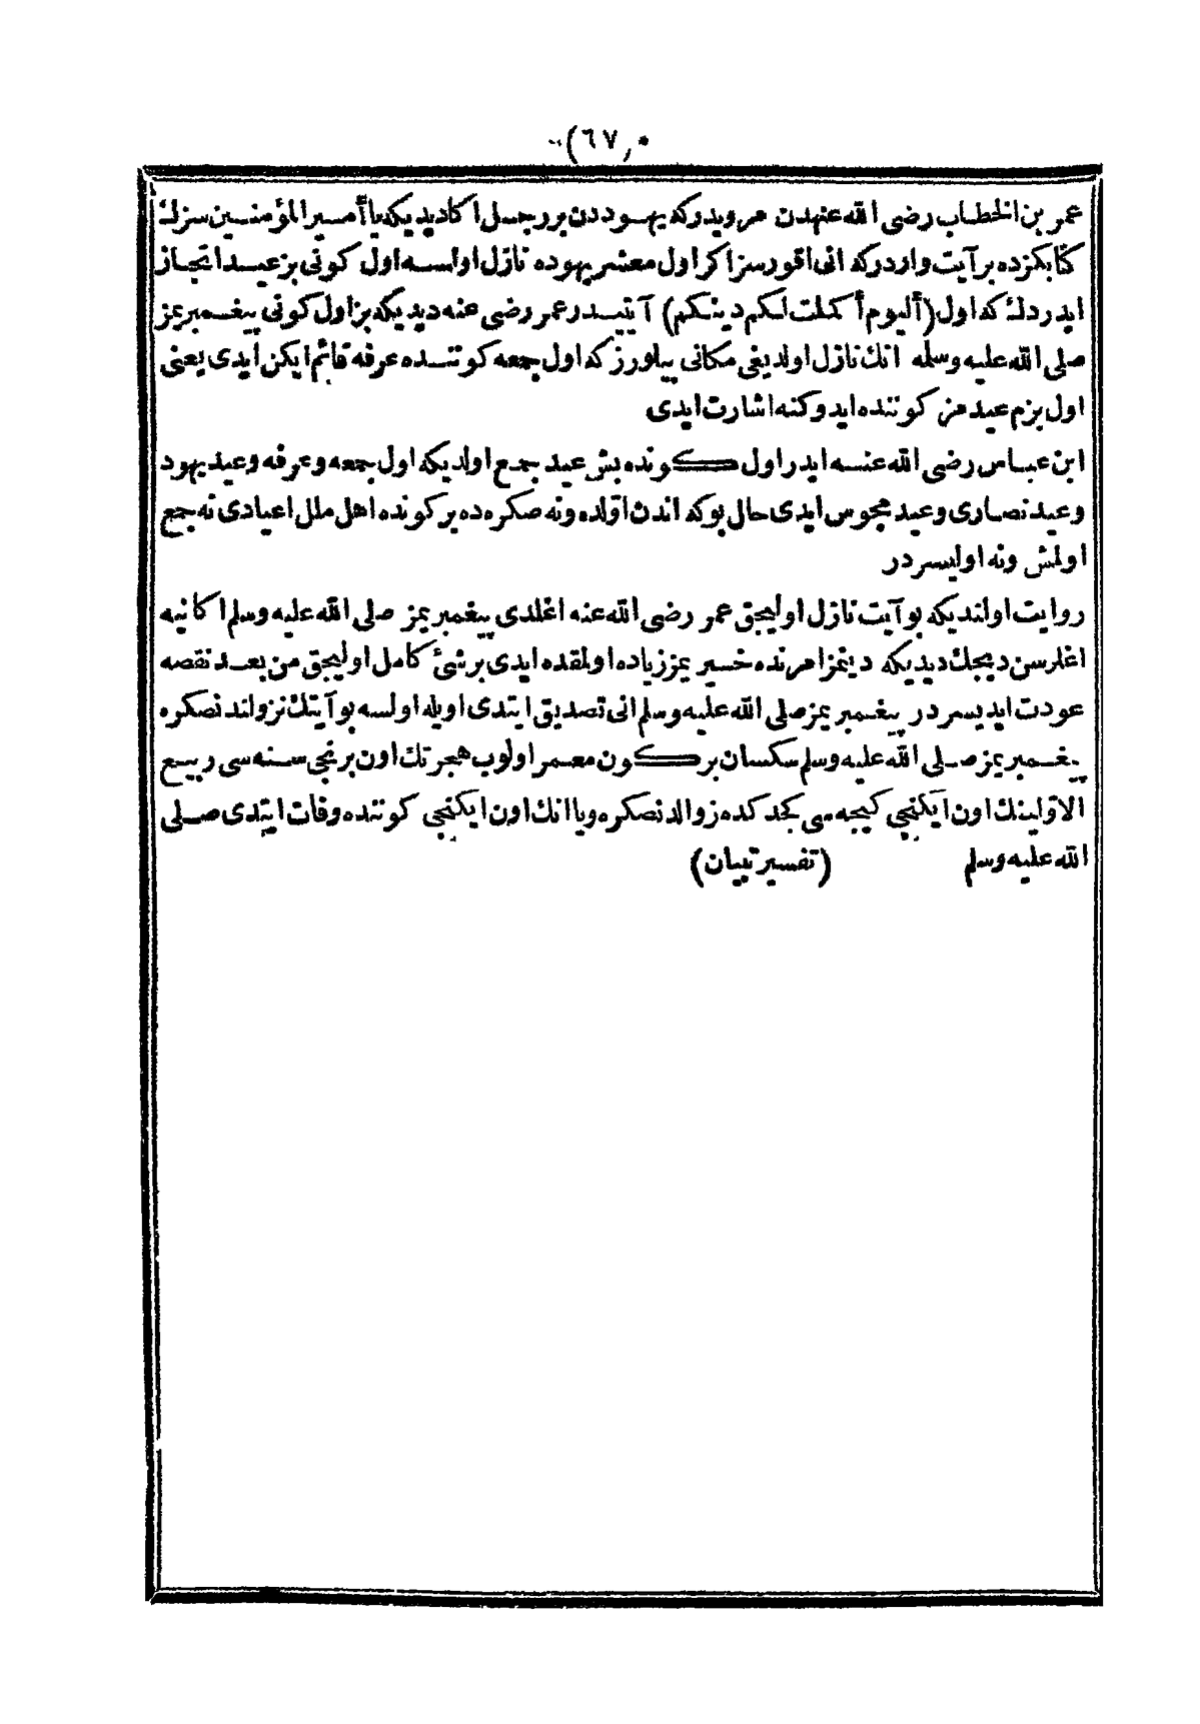 (٦٧)
عمر بن الخطاب رضى الله عنهدن مرويدركه يهوددن بر رجل اكا ديديكه يا أمير المؤمنين سزك
كتابكزده بر آيت واردركه انى اقورسز اكر اول معشر يهوده نازل اولسه اول كونى بز عيد اتخاذ
ايدردك كه اول (أليوم أكملت لكم دينكم) آيتيدر عمر رضى عنه ديديكه بز اول كونى پيغمبريمز
صلى الله عليه وسلمه انك نازل اولديغى مكانى بيلورز كه اول جمعه كوننده عرفه قائم ايكن ايدى يعنى
اول بزم عيدمز كوننده ايدوكنه اشارت ايدى
ابن عباس رضى الله عنه ايدر اول كونده بش عيد جمع اولديكه اول جمعه وعرفه وعيد يهود
وعيد نصارى وعيد مجوس ايدى حال بوكه اندن اوّلده ونه صكره ده بر كونده اهل ملل اعيادى نه جمع
اولمش ونه اوليسردر
روايت اولنديكه بو آيت نازل اوليجق عمر رضى الله عنه اغلدى پيغمبريمز صلى الله عليه وسلم اكا نيه
اغلرسن ديجك ديديكه دينمز امرنده خسير يمز زياده اولمقده ايدى بر شئ كامل اوليجق من بعد نقصه
عودت ايديسردر پيغمبريمز صلى الله عليه وسلم انى تصديق ايتدى اويله اولسه بو آيتك نزولندنصكره
پيغمبريمز صلى الله عليه وسلم سكسان بر كون معمر اولوب هجرتك اون برنجى سنه سى ربيع
الاوّلينك اون ايكنجى كيجه سى كجدكده زوالدنصكره ويا انك اون ايكنجى كوننده وفات ايتدى صلى
الله عليه وسلم (تفسير تبيان)